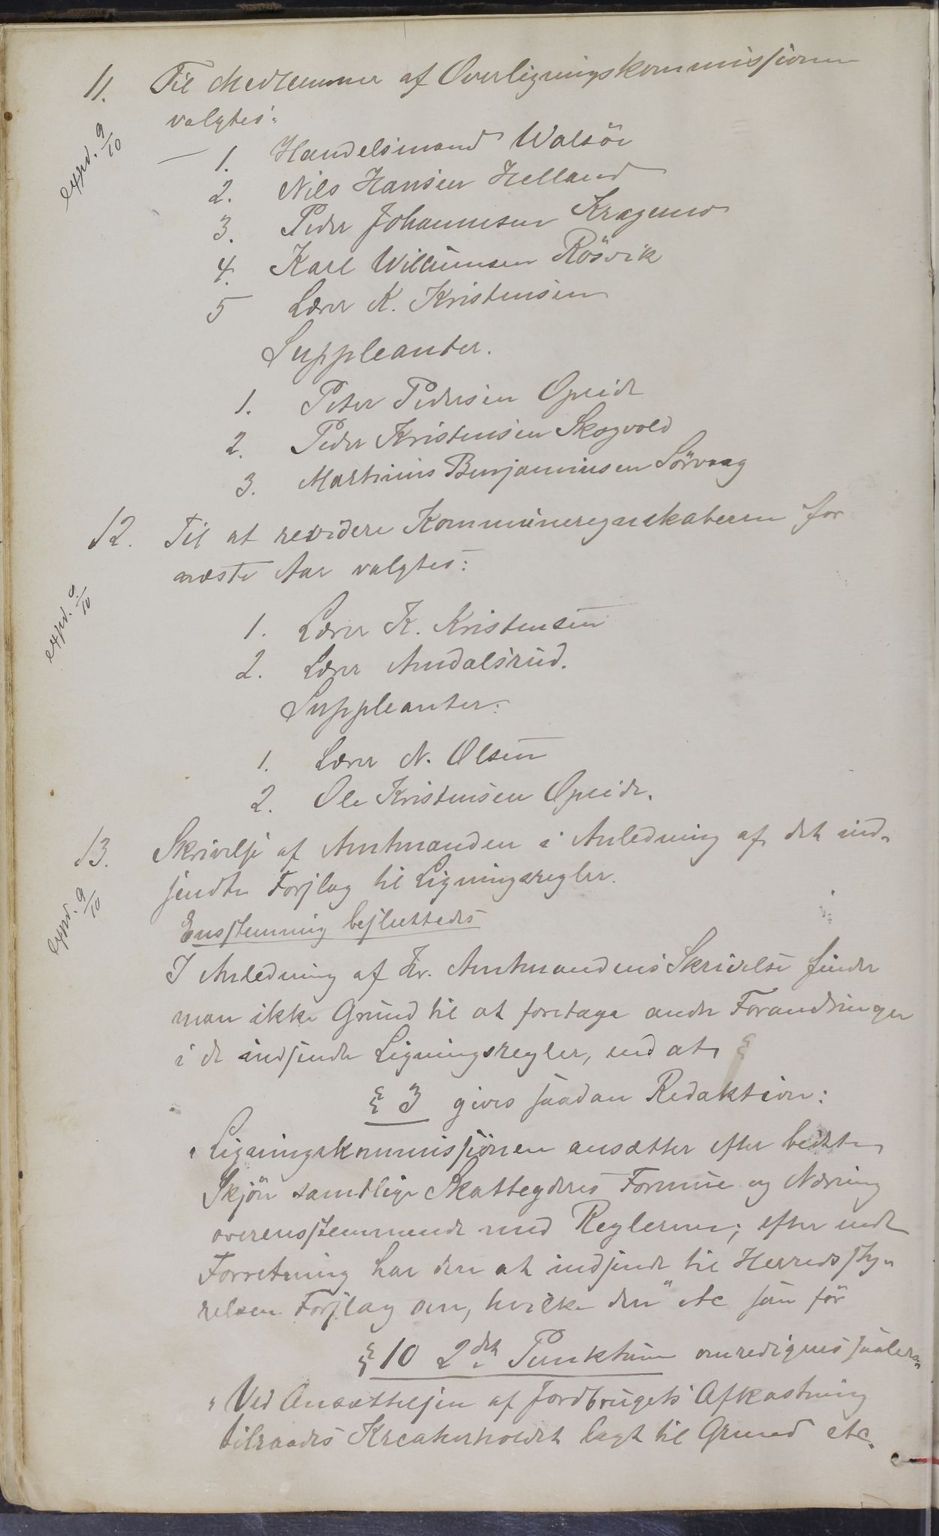 11. Til Medlemmer af Overligningskommissionen
valgtes:
expd. 9/10
1. Handelsmand Walsöe
2. Nils Hansen Helland
3. Peder Johannesen Kragmo
4. Karl Willumsen Rösvik
5 Lærer K. Kristensen
Suppleanter.
1. Peter Pedersen Opeide
2. Peder Kristensen Skogvold
3. Martinus Benjaminsen Sörvaag
12. Til at revidere Kommuneregnskaberne for
næste Aar valgtes:
expd. 9/10
1. Lærer K. Kristensen
2. Lærer Amdalsrud.
Suppleanter:
1. Lærer N. Olsen
2. Ole Kristensen Opeide.
13. Skrivelse af Amtmanden i Anledning af det ind-
sendte Forslag til Ligningsregler.
expd. 9/10
Enstemmig besluttedes
I Anledning af Hr. Amtmandens Skrivelse finder
man ikke Grund til at foretage andre Forandringer
i de indsendte Ligningsregler, end at §
§ 3 gives saadan Redaktion:
"Ligningskommissionen ansætter efter bedste
Skjön samtlige Skatteyderes Formue og Næring
overensstemmende med Reglerne; efter endt
Forretning har den at indsende til Herredssty-
relsen Forslag om, hvilke den" etc som för
§ 10 2det Punktum omredigeres saaledes
"Ved Ansættelsen af Jordbrugets Afkastning
tilraades Kreaturholdet lagt til Grund etc.